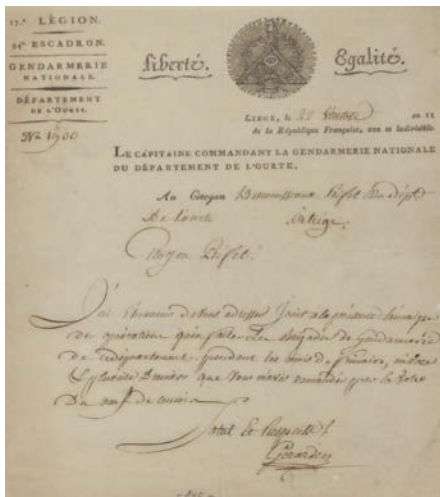 17.e LÉGION.
24e ESCADRON.
GENDARMERIE
NATIONALE.
DÉPARTEMENT
DE L'OURTE.
No 1900
Liberté. Egalité.
LIEGE, le 28 an 11
de la République Française, une et indivisible.
LE CAPITAINE COMMANDANT LA GENDARMERIE NATIONALE
DU DÉPARTEMENT DE L'OURTE,
Au Citoyen Préfet du dépt
De Lourte à Liége.
Citoyen Préfet.
J'ai l'honneur de vous adresser Joint à la présente
des opérations qu'on faites les Brigades de Gendarmerie
de ce département, pendant les mois de frimaire, nivose
& pluviose Derniers que vous m'avez demandés par la votre
Du neuf de courant
Salut et Respect
Gérardin